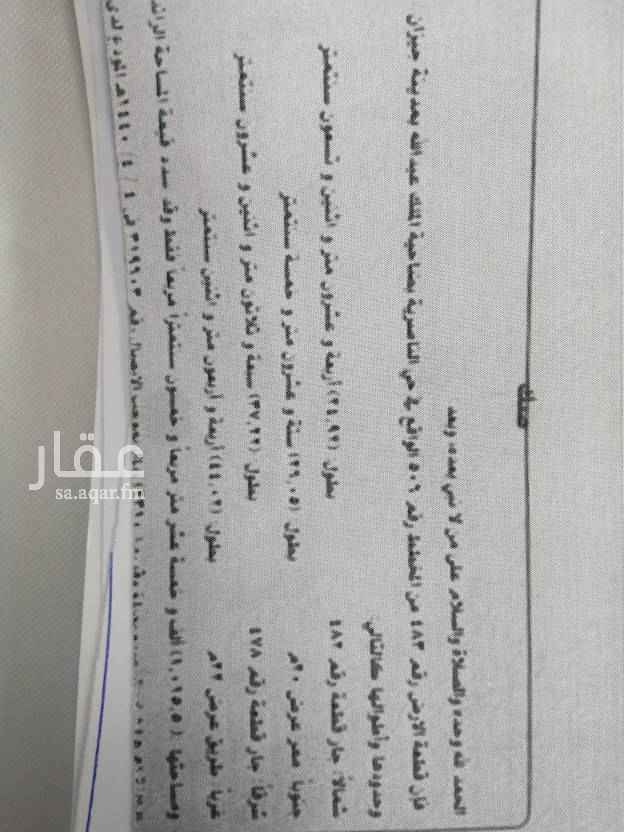 صك
الحمد لله وحده والصلاة والسلام على من لا نبي بعده، وبعد
فإن قطعة الارض رقم ٤٨٣ من المخطط رقم ٥٠٦ الواقع في حي الناصرية بضاحية الملك عبدالله بمدينة جيزان
وحدودها وأطوالها كالتالي
شمالاً: جار قطعة رقم ٤٨٢ بطول (٢٤,٩٢) أربعة و عشرون متر و اثنين و تسعون سنتمتر
جنوباً ممر عرض ٢٠م بطول (٢٦,٠٥) ستة و عشرون متر و خمسة سنتمتر
شرقاً جار قطعة رقم ٤٧٨ بطول (٣٧,٢٢) سبعة و ثلاثون متر و اثنين و عشرون سنتمتر
غرباً طريق عرض ٢٢م بطول (٤٤,٠٢) أربعة و أربعون متر و اثنين سنتمتر
ومساحتها (١,٠١٥,٥) ألف و خمسة عشر متر مربعاً و خمسون سنتمتراً مربعاً فقط وقد سدد قيمة المساحة الزائدة
الايصال رقم ٣١٩٩٠٣ في ٤ / ٤ / ١٤٤٠هـ المودع لدى
عقار
sa.aqar.fm